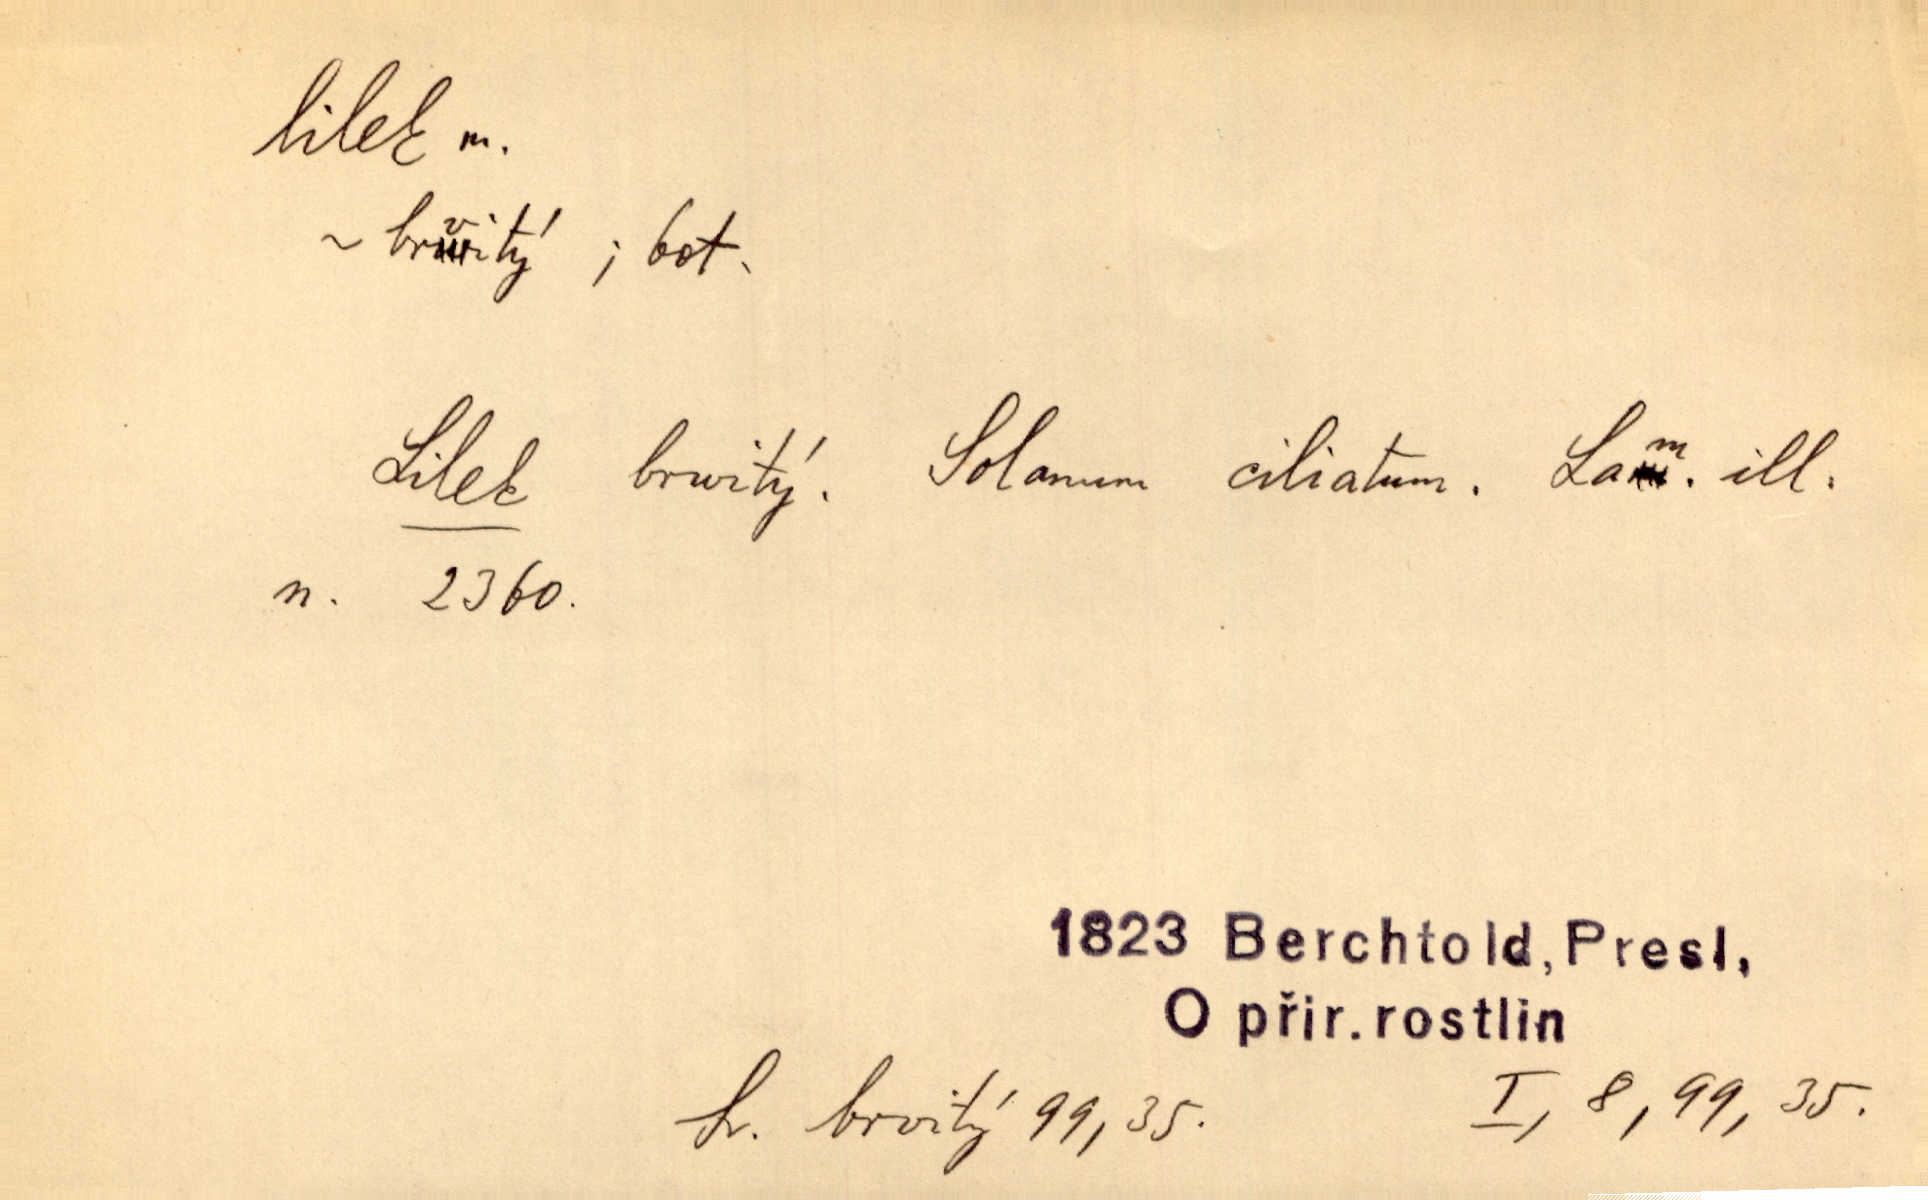 lilek m.
~ brvitý ; bot.
Lilek brwitý. Solanum ciliatum. Lam. ill.
n. 2360.
1823 Berchtold, Presl,
O přir. rostlin
Sr. brvitý 99, 35. I, 8, 99, 35.